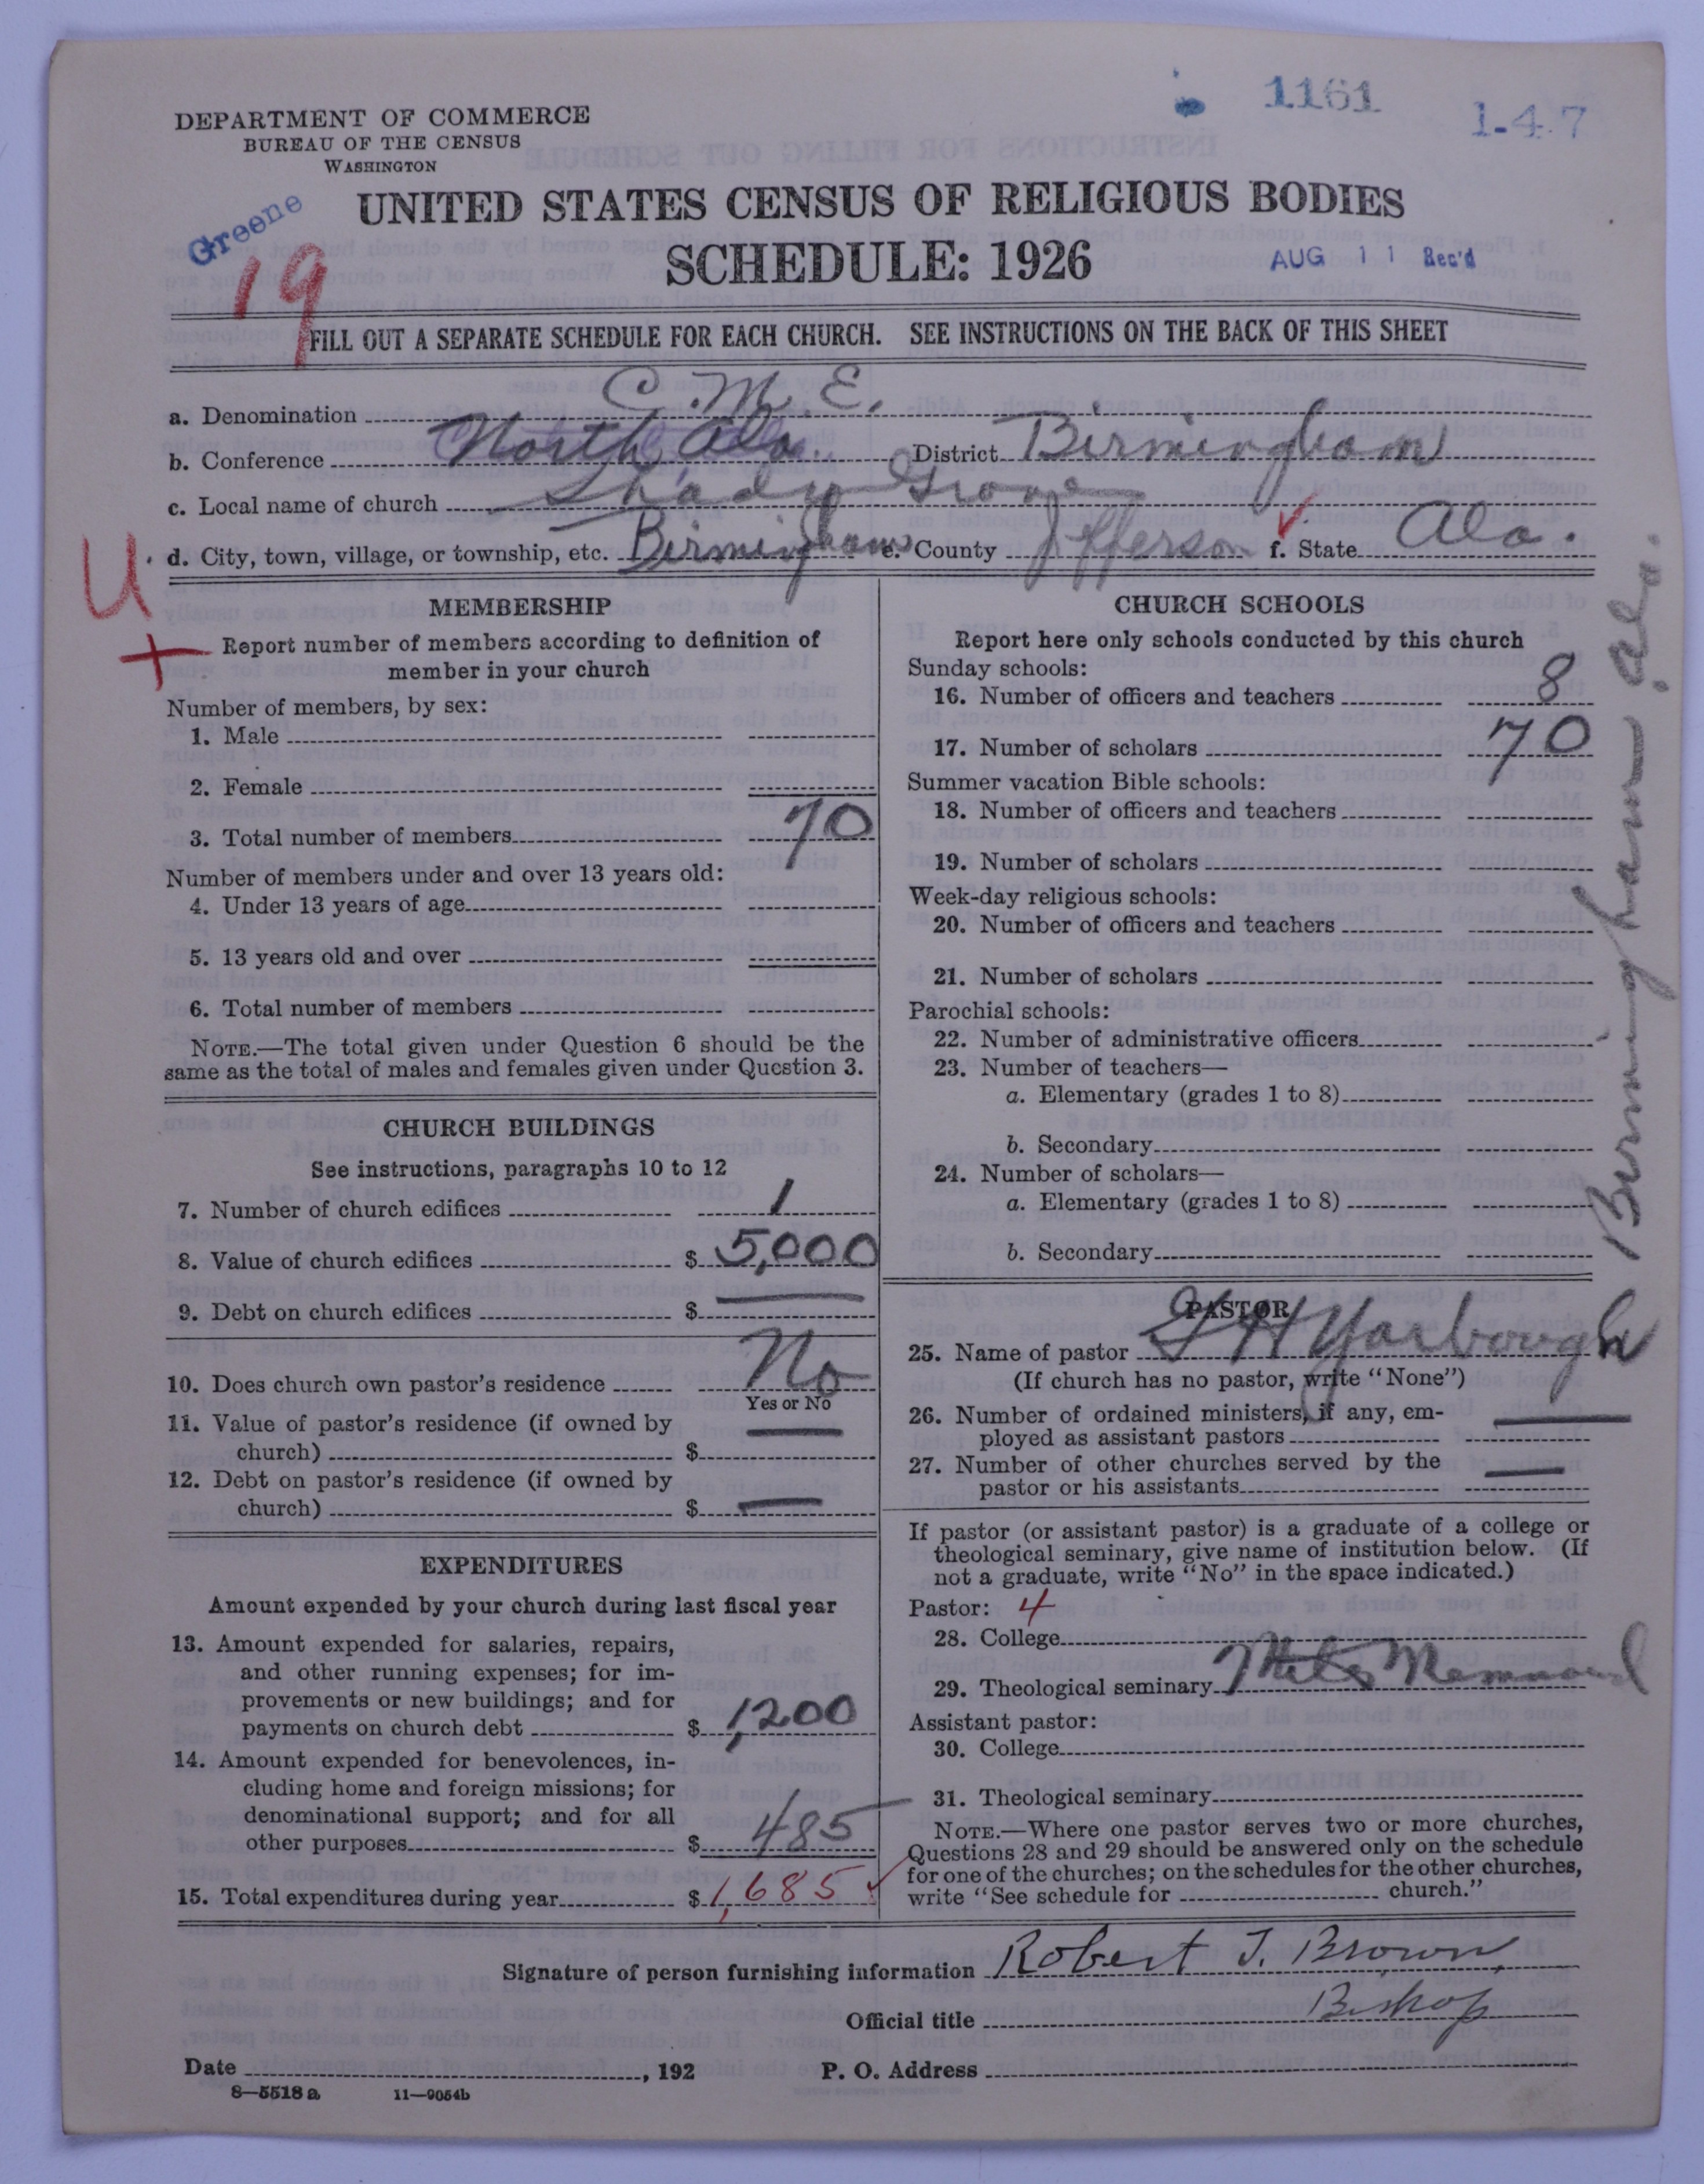 1161
1-4-7
DEPARTMENT OF COMMERCE
BUREAU OF THE CENSUS
WASHINGTON
Greene
19
UNITED STATES CENSUS OF RELIGIOUS BODIES
SCHEDULE: 1926
AUG 11 Rec'd
FILL OUT A SEPARATE SCHEDULE FOR EACH CHURCH. SEE INSTRUCTIONS ON THE BACK OF THIS SHEET
a. Denomination C. M. E.
b. Conference North Ala. District Birmingham
c. Local name of church Shady Grove
U
d. City, town, village, or township, etc. Birmingham e. County Jefferson f. State Ala.
MEMBERSHIP
+ Report number of members according to definition of
member in your church
Number of members, by sex:
1. Male
2. Female
3. Total number of members 70
Number of members under and over 13 years old:
4. Under 13 years of age
5. 13 years old and over
6. Total number of members
NOTE.—The total given under Question 6 should be the
same as the total of males and females given under Question 3.
CHURCH BUILDINGS
See instructions, paragraphs 10 to 12
7. Number of church edifices 1
8. Value of church edifices $ 5,000
9. Debt on church edifices $ —
10. Does church own pastor's residence No
Yes or No
11. Value of pastor's residence (if owned by
church) $ —
12. Debt on pastor's residence (if owned by
church) $ —
EXPENDITURES
Amount expended by your church during last fiscal year
13. Amount expended for salaries, repairs,
and other running expenses; for im-
provements or new buildings; and for
payments on church debt $ 1,200
14. Amount expended for benevolences, in-
cluding home and foreign missions; for
denominational support; and for all
other purposes $ 485
15. Total expenditures during year $ 1,685
CHURCH SCHOOLS
Report here only schools conducted by this church
Sunday schools:
16. Number of officers and teachers 8
17. Number of scholars 70
Summer vacation Bible schools:
18. Number of officers and teachers
19. Number of scholars
Week-day religious schools:
20. Number of officers and teachers
21. Number of scholars
Parochial schools:
22. Number of administrative officers
23. Number of teachers—
a. Elementary (grades 1 to 8)
b. Secondary
24. Number of scholars—
a. Elementary (grades 1 to 8)
b. Secondary
PASTOR
25. Name of pastor H Yarbough
(If church has no pastor, write "None")
26. Number of ordained ministers, if any, em-
ployed as assistant pastors —
27. Number of other churches served by the
pastor or his assistants —
If pastor (or assistant pastor) is a graduate of a college or
theological seminary, give name of institution below. (If
not a graduate, write "No" in the space indicated.)
Pastor: 4
28. College
29. Theological seminary Miles Memorial
Assistant pastor:
30. College
31. Theological seminary
NOTE.—Where one pastor serves two or more churches,
Questions 28 and 29 should be answered only on the schedule
for one of the churches; on the schedules for the other churches,
write "See schedule for church."
Birmingham Ala.
Signature of person furnishing information Robert T. Brown,
Official title Bishop
Date , 192 P. O. Address
8—5518a 11—9054b